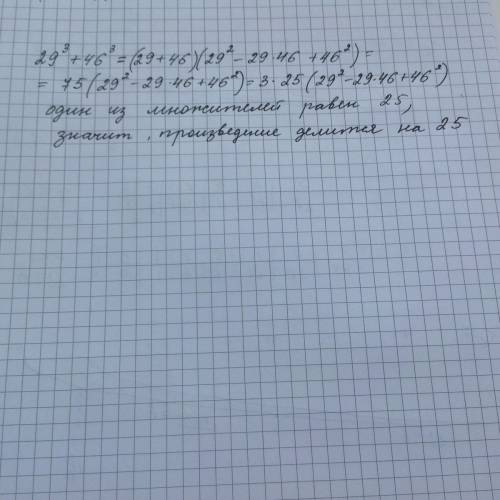 29³ + 46³ = (29 + 46)(29² − 29·46 + 46²) =
= 75(29² − 29·46 + 46²) = 3·25(29² − 29·46 + 46²)
один из множителей равен 25,
значит, произведение делится на 25